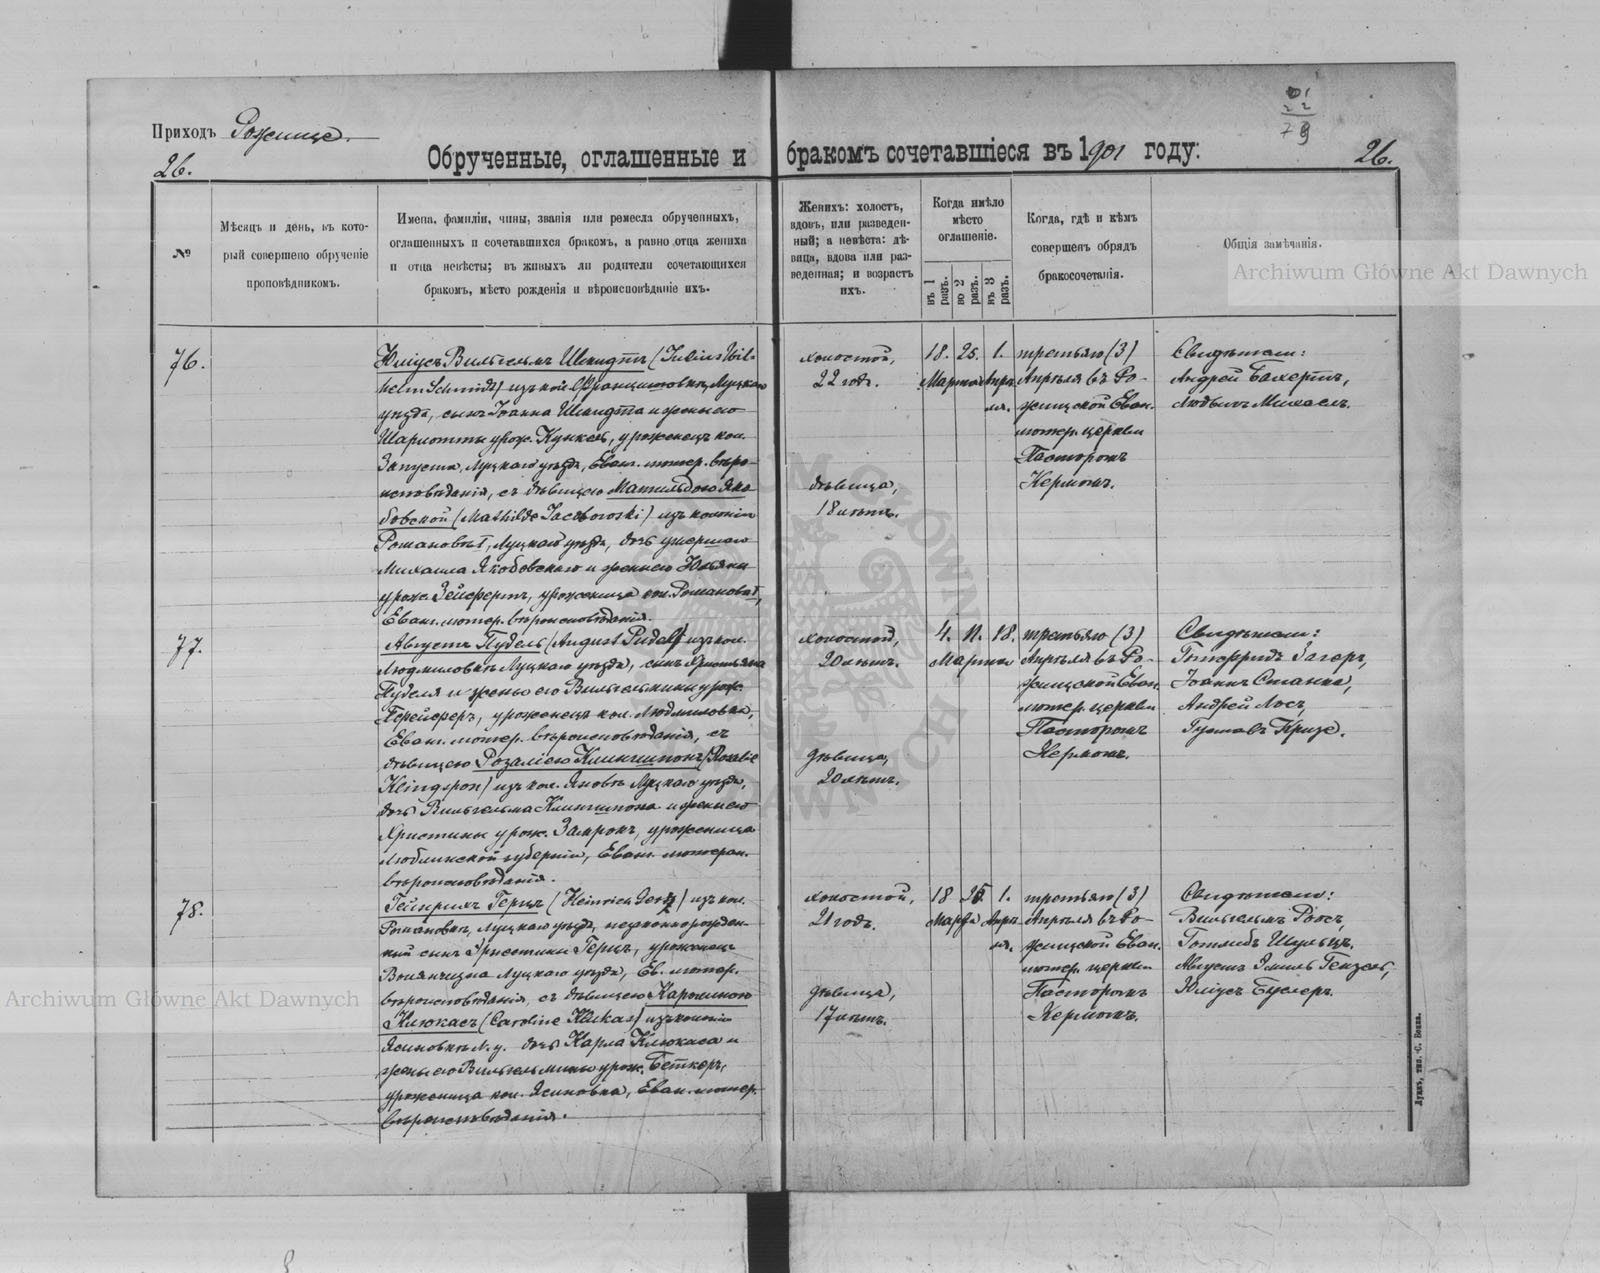 Приходъ Рожище.
26.
Обрученные, оглашенные и бракомъ сочетавшіеся въ 1901 году:
26.
№
Мѣсяцъ и день, въ кото-
рый совершено обрученіе
проповѣдникомъ.
Имена, фамиліи, чины, званія или ремесла обрученныхъ,
оглашенныхъ и сочетавшихся бракомъ, а равно отца жениха
и отца невѣсты; въ живыхъ ли родители сочетающихся
бракомъ, мѣсто рожденія и вѣроисповѣданіе ихъ.
Женихъ: холостъ,
вдовъ, или разведен-
ный; а невѣста: дѣ-
вица, вдова или раз-
веденная; и возрастъ
ихъ.
Когда имѣло
мѣсто
оглашеніе.
въ 1 разъ.
во 2 разъ.
въ 3 разъ.
Когда, гдѣ и кѣмъ
совершенъ обрядъ
бракосочетанія.
Общія замѣчанія.
76.
Юліусъ Вильгельмъ Шмидтъ (Julius Wil-
helm Schmidt) изъ кол. Францишовки, Луцкаго
уѣзда, сынъ Іоанна Шмидта и жены его
Шарлотты урож. Кункель, уроженецъ кол.
Запуста, Луцкаго уѣзда, Еван. лютер. вѣро-
исповѣданія, съ дѣвицею Матильдою Яко-
бовской (Mathilde Jacobowski) изъ колоніи
Романовъ I, Луцкаго уѣзда, дочь умершаго
Михаила Якобовскаго и жены его Юльяны
урож. Зейфертъ, уроженица кол. Романовъ I,
Еван. лютер. вѣроисповѣданія.
холостой,
22 годъ.
дѣвица,
18 лѣтъ.
18. 25. 1.
Марта Апрѣ-
ля.
третьяго (3)
Апрѣля въ Ро-
жищской Еван.
лютер. церкви
Пасторомъ
Кермомъ.
Свидѣтели:
Андрей Бахертъ,
Людвигъ Михаель.
77.
Августъ Пудель (August Pudel) изъ кол.
Людмиловки Луцкаго уѣзда, сынъ Христьяна
Пуделя и жены его Вильгельмины урож.
уроженецъ кол. Людмиловка,
Еван. лютер. вѣроисповѣданія, съ
дѣвицею Розаліею Клингшпонъ (Rosalie
Klingspon) изъ кол. Яновъ Луцкаго уѣзда,
дочь Вильгельма Клингшпона и жены его
Христины урож. уроженица
Люблинской губерніи, Еван. лютеран.
вѣроисповѣданія.
холостой,
20 лѣтъ.
дѣвица,
20 лѣтъ.
4. 11. 18.
Марта
третьяго (3)
Апрѣля въ Ро-
жищской Еван.
лютер. церкви
Пасторомъ
Кермомъ.
Свидѣтели:
Готфридъ Загеръ,
Іоаннъ Станке,
Андрей Лосъ,
Густавъ Кризе.
78.
Гейнрихъ Герцъ (Heinrich Gertz) изъ кол.
Романовъ, Луцкаго уѣзда, незаконнорожден-
ный сынъ Христины Герцъ, уроженецъ
Волянщизна Луцкаго уѣзда, Ев. лютер.
вѣроисповѣданія, съ дѣвицею Каролиною
Клюкасъ (Caroline Klukas) изъ колоніи
Ясиновка Л. у. дочь Карла Клюкаса и
жены его Вильгельмины урож. Беткеръ,
уроженица кол. Ясиновка, Еван. лютер.
вѣроисповѣданія.
холостой,
21 годъ.
дѣвица,
17 лѣтъ.
18 25 1.
Марта Апрѣ-
ля.
третьяго (3)
Апрѣля въ Ро-
жищской Еван.
лютер. церкви
Пасторомъ
Кермомъ.
Свидѣтели:
Вильгельмъ
Готлибъ Шульцъ,
Августъ Эмиль Гензель,
Юліусъ Буслеръ.
Луцкъ, тип. С. Бонка.
Archiwum Główne Akt Dawnych
Archiwum Główne Akt Dawnych